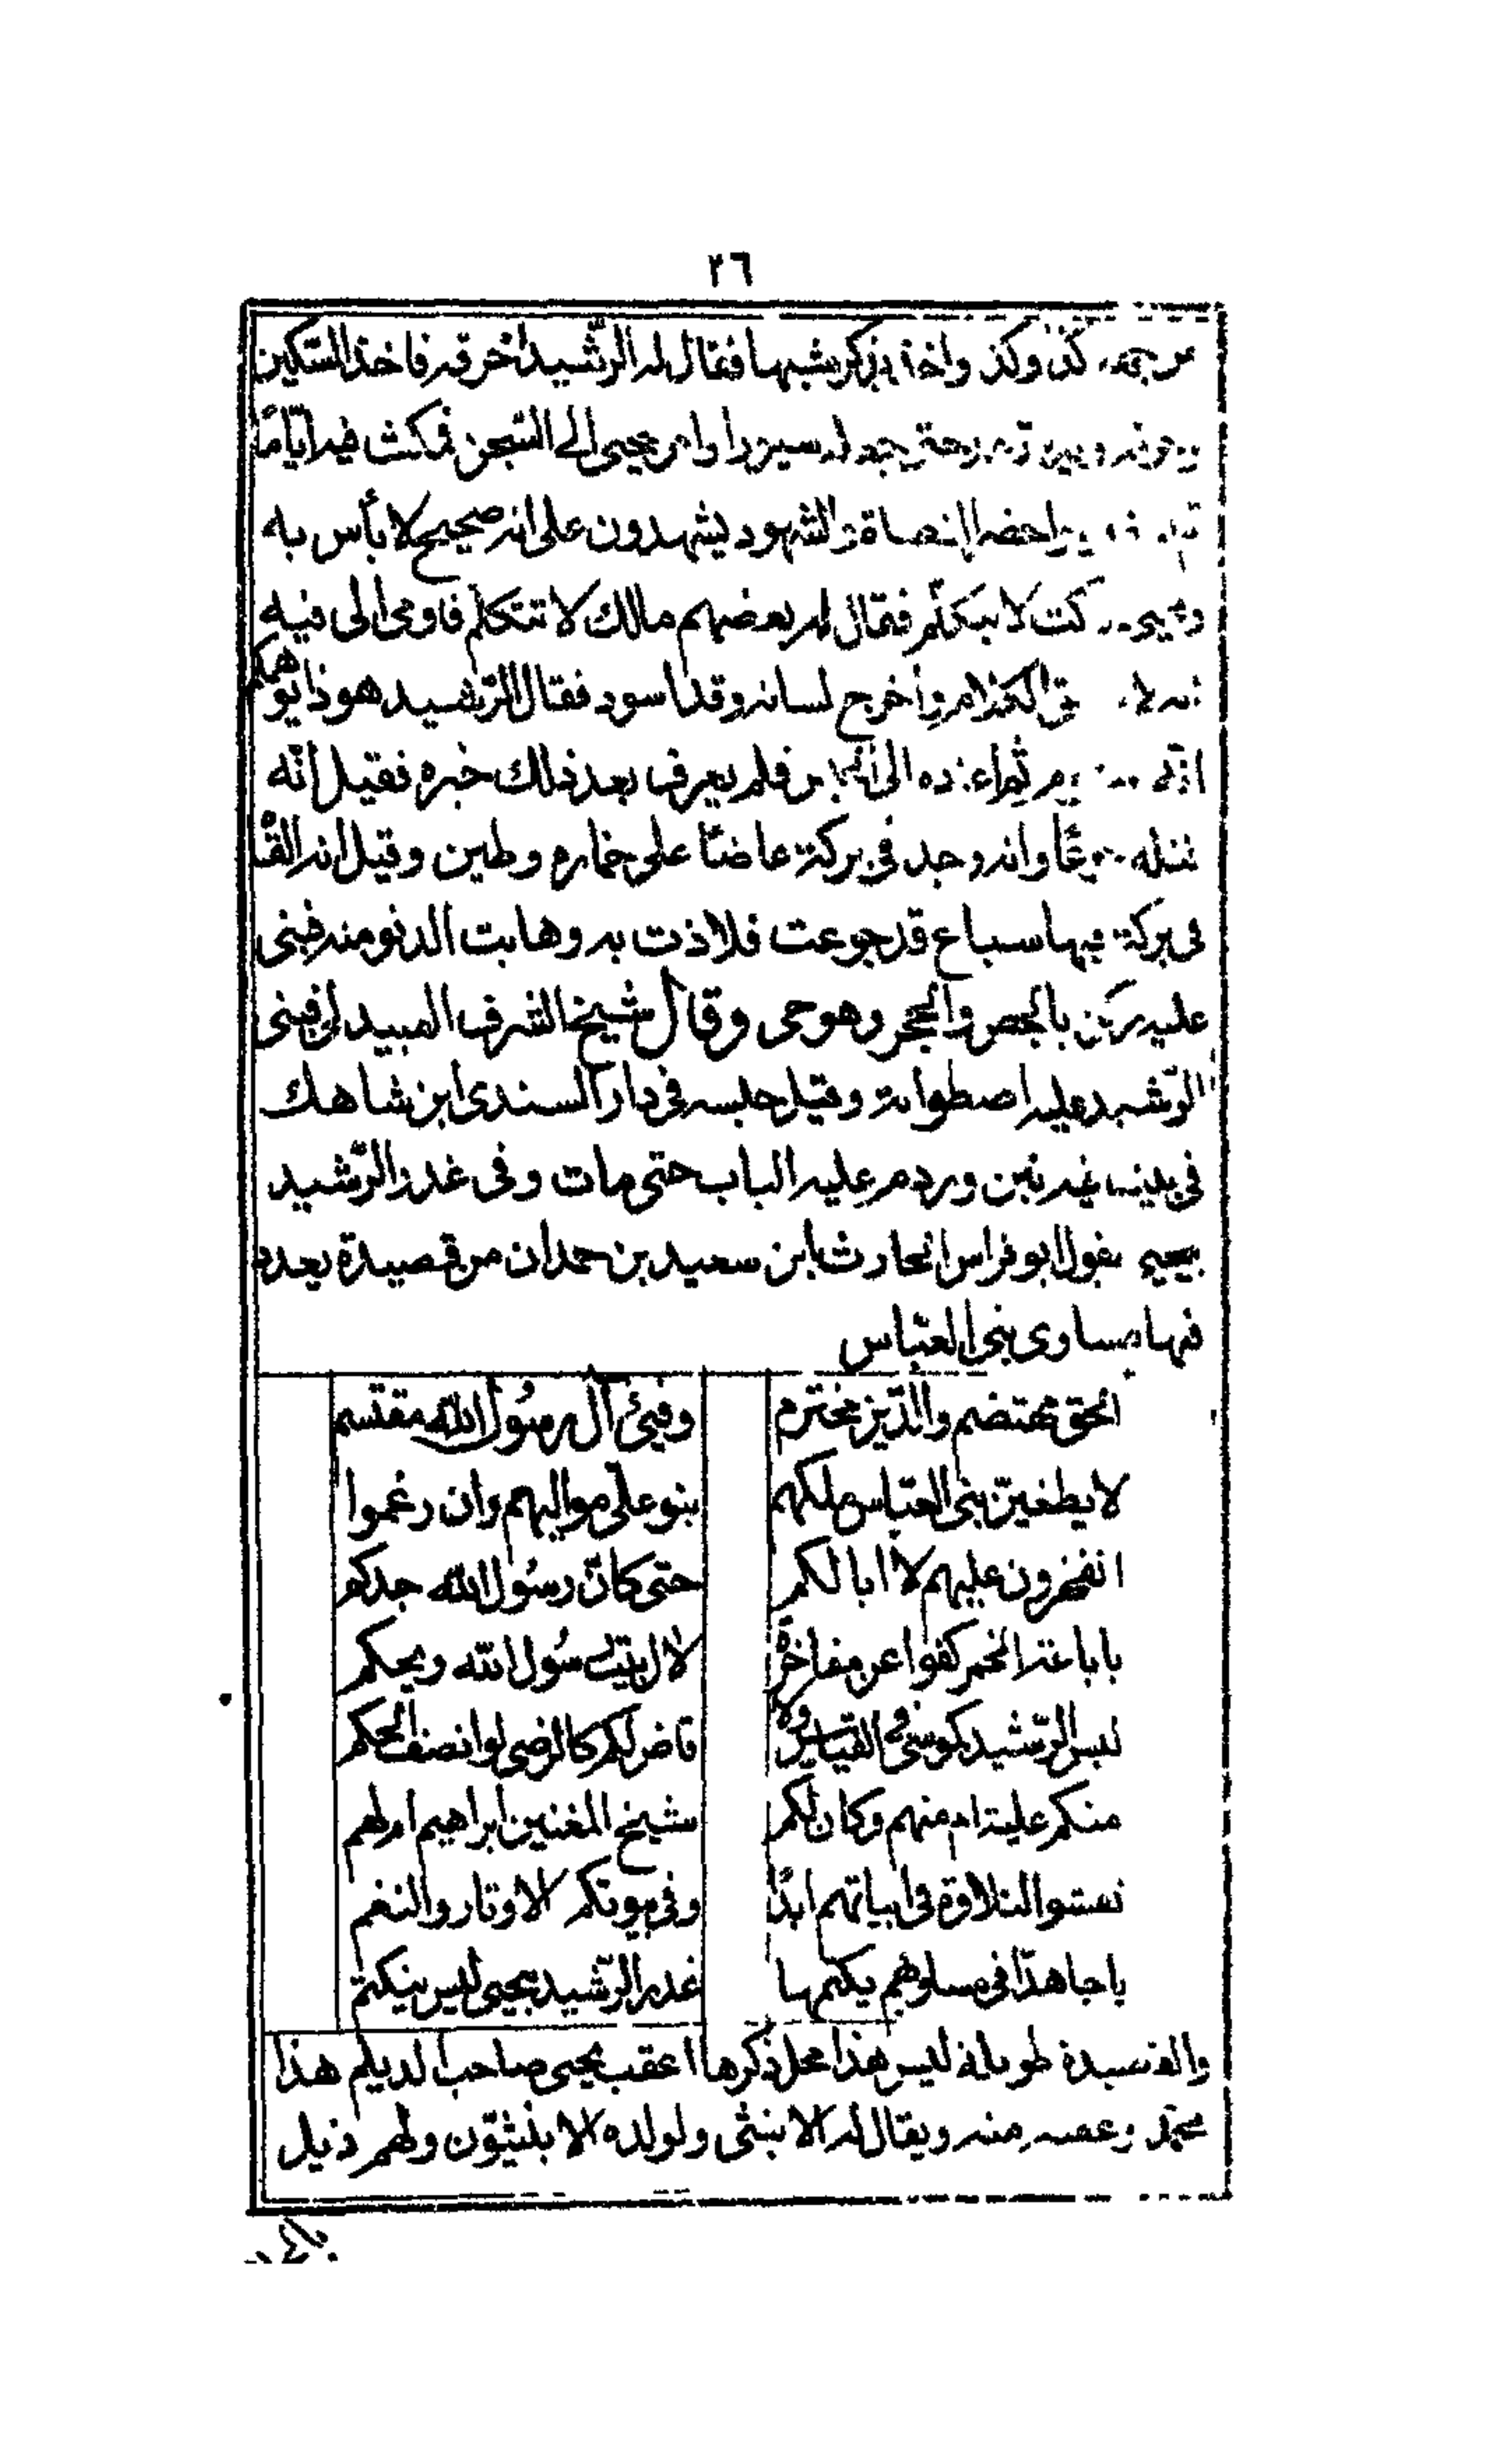 ٢٦
كذا وكذا واخذ يذكر شبهها فقال له الرشيد اخرقه فاخذ السكين
يحيى الى السجن فمكث فيه اياما
واحضر القضاة والشهود يشهدون على انه صحيح لا بأس به
ويحيى ساكت لا يتكلم فقال له بعضهم مالك لا تتكلم فاومى الى فيه
الكلام واخرج لسانه وقد اسود فقال الرشيد هوذا يوهمكم
انه ثم اعاده الى الحبس فلم يعرف بعد ذلك خبره فقيل انه
قتله جوعًا وانه وجد في بركة عاضًا على حماره وطين وقيل انه القى
في بركة فيها سباع قد جوعت فلاذت به وهابت الدنو منه فبنى
عليه ركن بالجص والحجر وهو حى وقال شيخ الشرف العبيدلى بنى
الرشيد عليه اصطوانة وقيل حبسه في دار السندى ابن شاهك
في بيت فيه نتن وردم عليه الباب حتى مات وفى غدر الرشيد
بيحيى يقول ابو فراس الحارث ابن سعيد بن حمدان من قصيدة يعدد
فيها مساوى بنى العباس
الحق مهتضم والدين مخترم وفيئ آل رسول الله مقتسم
لا يطغين بنى العباس ملكهم بنو على مواليهم وان رغموا
اتفخرون عليهم لا ابا لكم حتى كان رسول الله جدكم
يا باعة الخمر كفوا عن مفاخرة لآل بيت رسول الله ويحكم
ليس الرشيد كموسى في القياس ولا قاض لكم كالرضى لو انصف الحكم
منكم علية ام منهم وكان لكم شيخ المغنين ابراهيم ام لهم
تمشوا التلاوة في ابياتهم ابدًا وفي بيوتكم الاوتار والنغم
يا جاهدًا في مساويهم يكتمها غدر الرشيد بيحيى ليس ينكتم
والقصيدة طويلة ليس هذا محل ذكرها اعقب يحيى صاحب الديلم هذا
محمد وعقبه منه ويقال له الابنثى ولولده الابنثيون ولهم ذيل